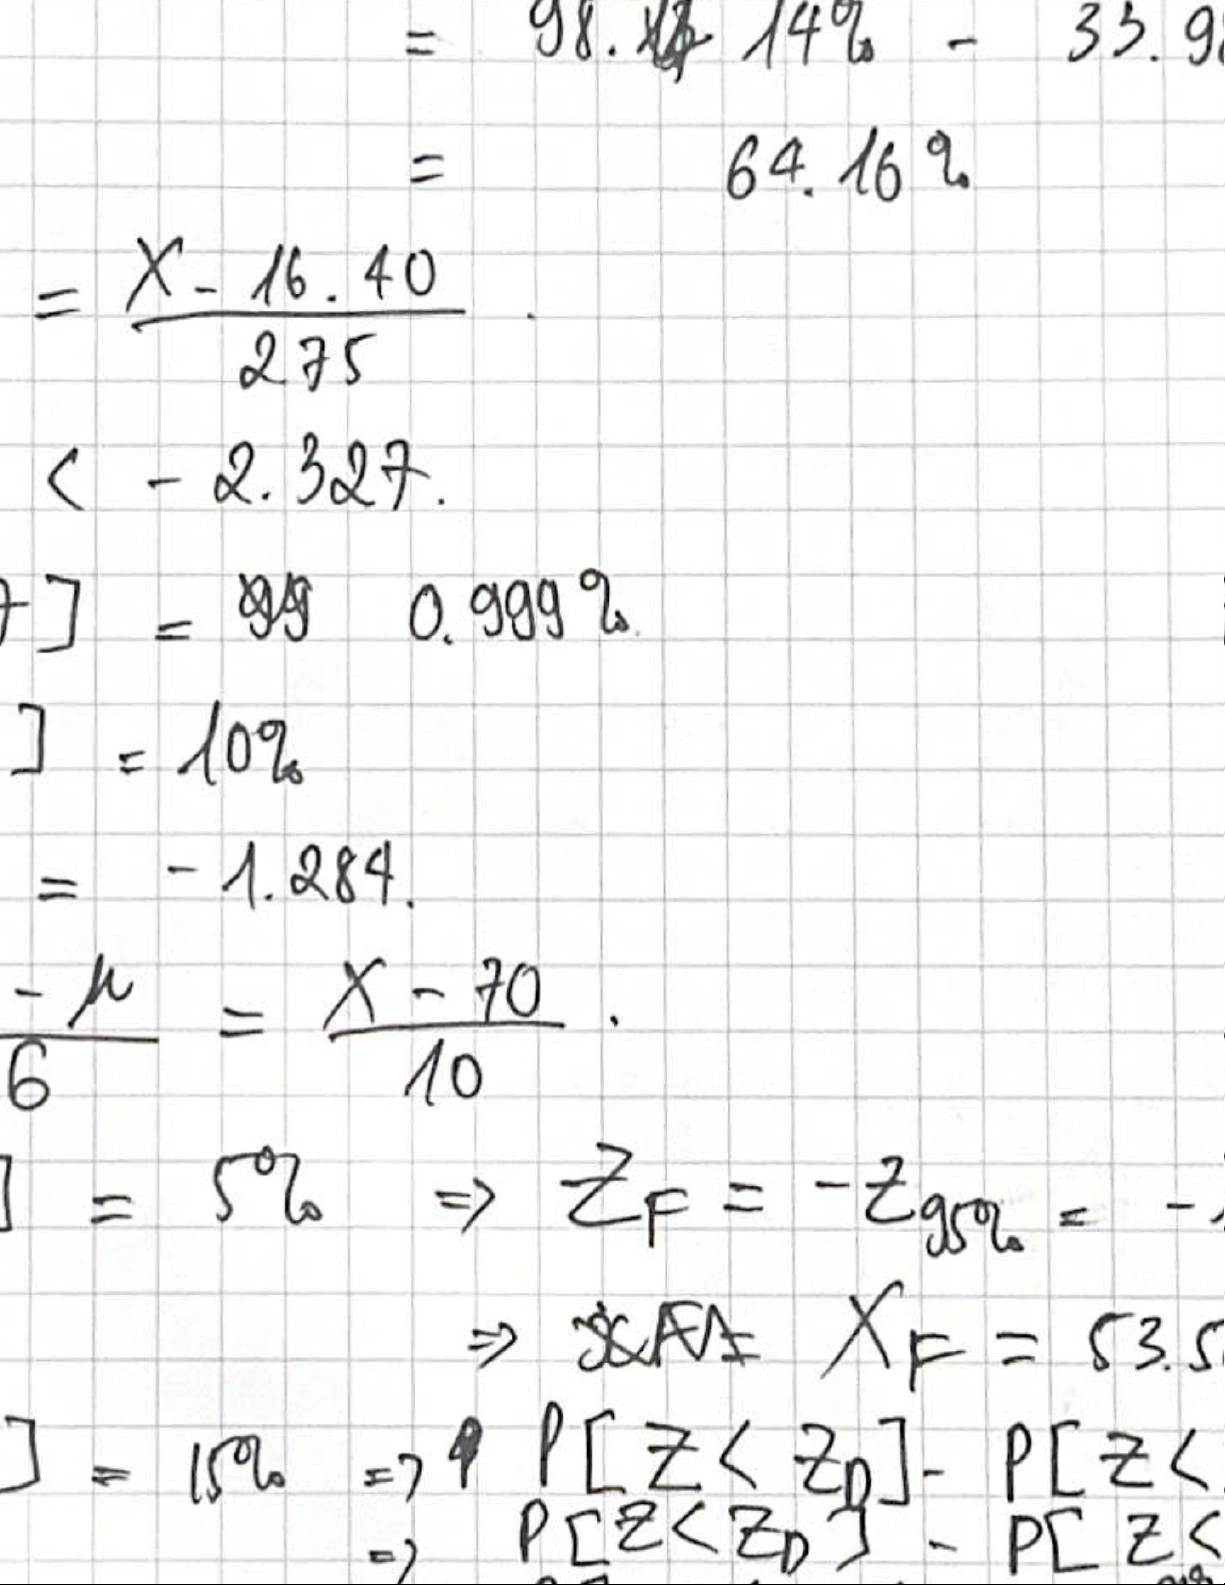 = 98. 14% - 33.9
= 64.16%
= X - 16.40 / 275 .
< - 2.327.
] = 0.999%
] = 10%
= - 1.284.
- μ / 6 = X - 70 / 10 .
] = 5% => Z_F = -Z_95% = -
=> X_F = 53.5
] = 15% => P[Z < Z_D] - P[Z <
=> P[Z < Z_D] - P[Z <